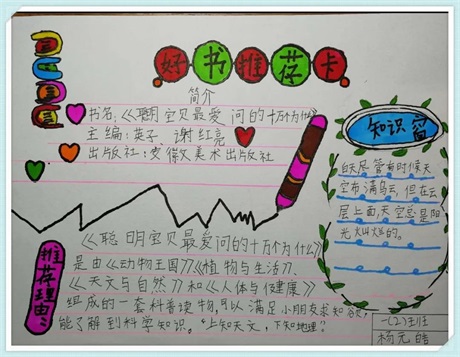 好书推荐卡
简介
书名:《聪明宝贝最爱问的十万个为什么》
主编:英子 谢红亮
出版社:安徽文美术出版社
知识窗
白天尽管有时候天
空布满乌云,但在云
层上面天空总是阳
光灿烂的。
推荐理由:
《聪明宝贝最爱问的十万个为什么》
是由《动物王国》《植物与生活》、
《天文与自然》和《人体与健康》
组成的一套科普读物,可以满足小朋友求知欲,
能了解到科学知识。“上知天文,下知地理?
一(2)班
杨元皓